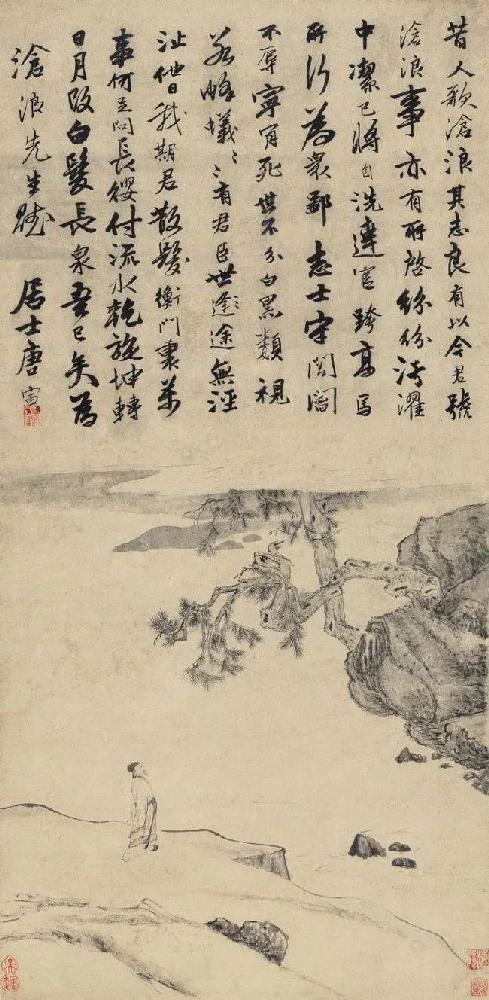 昔人歌滄浪其志良有以今君號
滄浪事亦有所啓紛紛清濯
中潔已將自洗達官跨高馬
所行為衆鄙志士守閭閻
不辱寧死世不分白黑類視
若蜂蟻〻〻有君臣世途無涇
沚他日我期君散髮衡門裏萬
事何足問長纓付流水乾旋坤轉
日月改白髮長哀吾已矣為
滄浪先生賦 居士唐寅